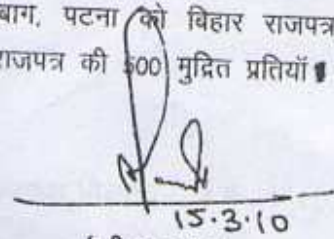 बाग, पटना को बिहार राजपत्र
राजपत्र की 500 मुद्रित प्रतियाँ
15.3.10